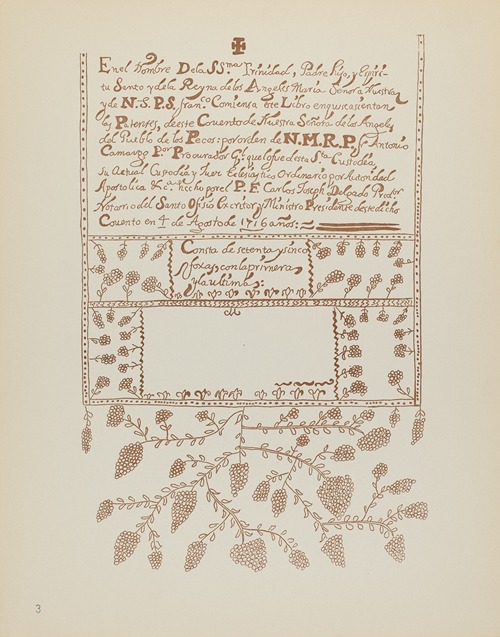 En el Nombre De la SS.ma Trinidad, Padre Hijo, y Espiri-
tu Santo y de la Reyna de los Angeles Maria Señora Nuestra
y de N.S.P.S. fran.co Comiensa este Libro en que se asientan
las Patentes, de este Convento de Nuestra Señora de los Angeles
del Pueblo de los Pecos: por orden de N.M.R.P. fr Antonio
Camargo P.or Procurador G.l que fue de esta S.ta Custodia,
su Actual Custodio, y Juez Eclesiastico Ordinario por Autoridad
Apostolica & hecho por el P. F. Carlos Joseph Delgado Pred.or
Notario del Santo Ofisio Escritor y Ministro Presidente de este dicho
Convento en 4 de Agosto de 1716 años:
Consta de setenta y sinco
foxas, con la primera
y la ultima:
3